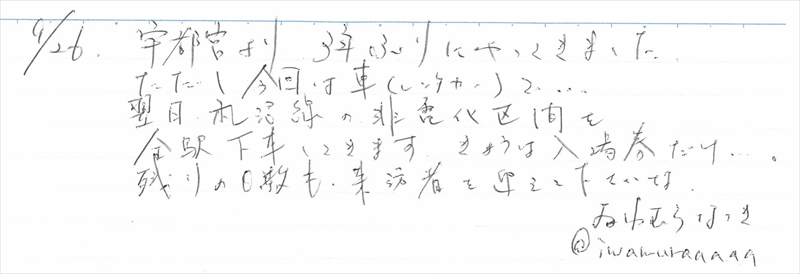 9/26. 宇都宮より 3年ぶりにやってきました
ただし今回は車(レンタカー)で....
翌日、札沼線の非電化区間を
全駅下車してきます きょうは入場券だけ...。
残りの日数も、来訪者を迎えて下さいな.
いわむらなつき
@iwamuraaaaa